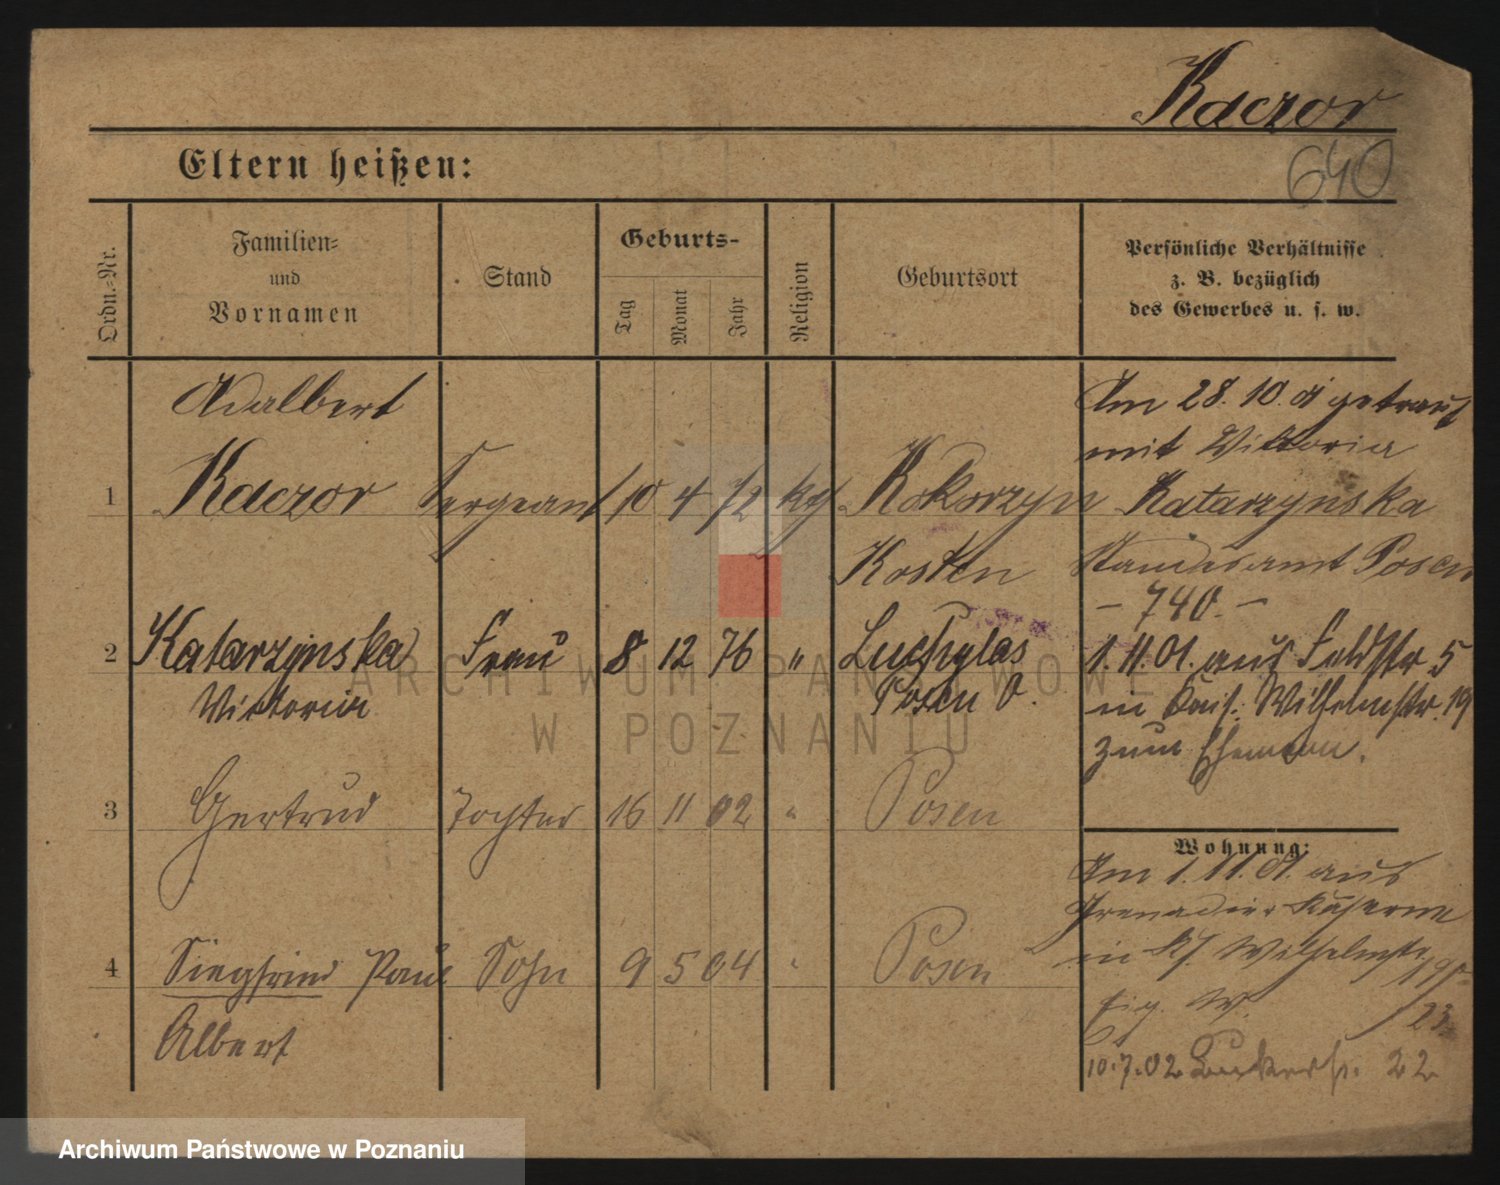 Kaczor
640
Eltern heißen:
Ordn.-Nr.
Familien-
und
Vornamen
Stand
Geburts-
Tag
Monat
Jahr
Religion
Geburtsort
Persönliche Verhältnisse
z. B. bezüglich
des Gewerbes u. s. w.
Adalbert
1 Kaczor Sergeant 10 4 72 kg Kokorzyn
Kosten
Am 28. 10. 01 getraut
mit Viktoria
Katarzynska
Standesamt Posen
- 740. -
2 Katarzynska Frau 8 12 76 "
Viktoria
Posen O.
1. 11. 01. aus Feldstr 5
in Kais. Wilhelmstr. 19
zum Ehemann.
3 Gertrud Tochter 16 11 02 " Posen
Wohnung:
Am 1. 11. 01. aus
Grenadier Kaserne
in Ks. Wilhelmstr. 19
4 Siegfried Paul Sohn 9 5 04 " Posen
Albert
Eig. W. 23
10.7.02 22
ARCHIWUM PAŃSTWOWE
W POZNANIU
Archiwum Państwowe w Poznaniu